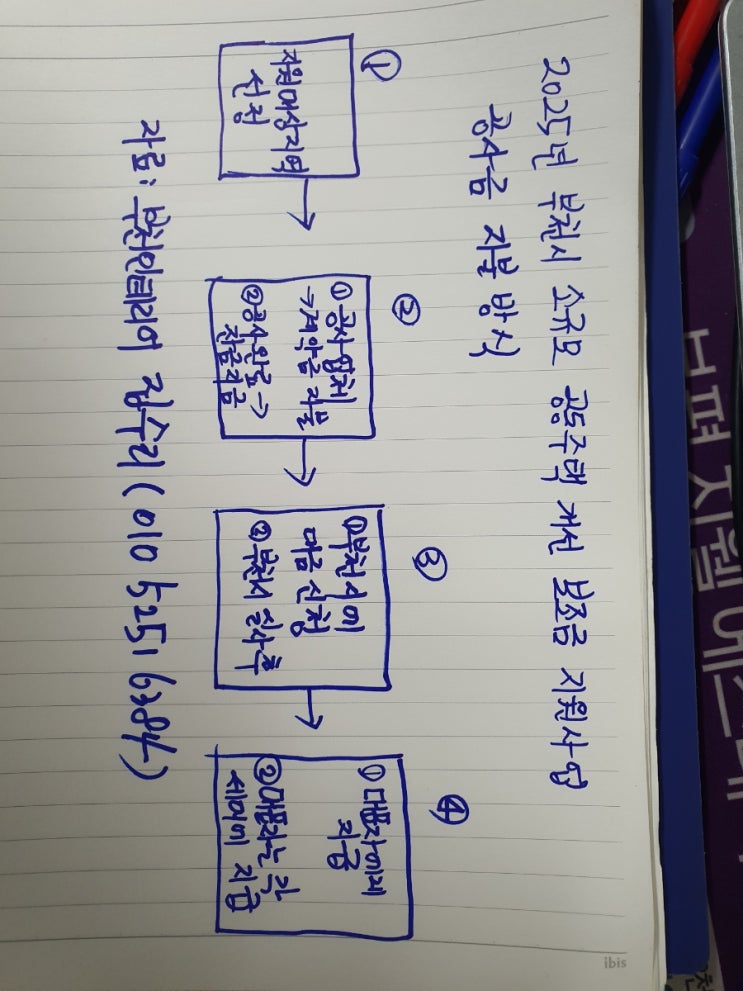 2025년 부천시 소규모 공동주택 개선 보조금 지원사업
공사금 지불 방식
①
지원대상지역
선정
→
②
① 공사업체
→계약금 지불
② 공사완료 →
잔금지금
→
③
① 부천시에
대금 신청
② 부천시 심사후
→
④
① 대표자에게
지급
② 대표자는 각
세대에 지급
자료: 부천인테리어 집수리 (010 5251 6384)
ibis